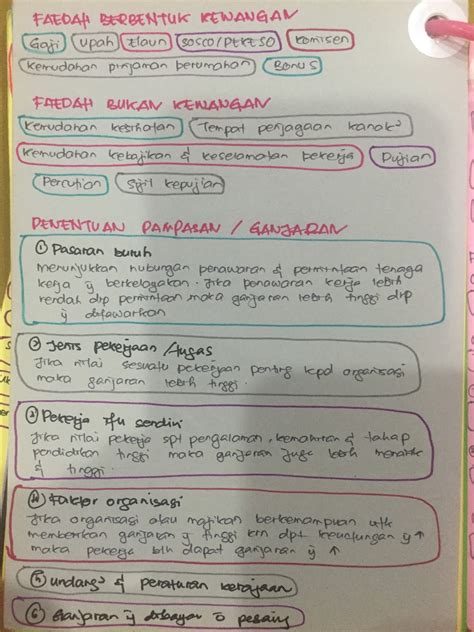 FAEDAH BERBENTUK KEWANGAN
Gaji Upah Elaun SOSCO/PEKESO Komisen
Kemudahan pinjaman perumahan Bonus
FAEDAH BUKAN KEWANGAN
Kemudahan kesihatan Tempat penjagaan kanak²
Kemudahan kebajikan & keselamatan pekerja Pujian
Percutian Sijil kepujian
PENENTUAN PAMPASAN / GANJARAN
① Pasaran buruh
menunjukkan hubungan penawaran & permintaan tenaga
kerja ÿ berkelogakan. Jika penawaran kerja lebih
rendah drp permintaan maka ganjaran lebih tinggi drp
ÿ ditawarkan
② Jenis pekerjaan /tugas
Jika nilai sesuatu pekerjaan penting kpd organisasi
maka ganjaran lebih tinggi.
③ Pekerja itu sendiri
Jika nilai pekerja spt pengalaman, kemahiran & tahap
pendidikan tinggi maka ganjaran juga lebih menarik
& tinggi.
④ Faktor organisasi
Jika organisasi atau majikan berkemampuan utk
memberikan ganjaran ÿ tinggi krn dpt keuntungan ÿ ↑
maka pekerja blh dapat ganjaran ÿ ↑
⑤ undang² & peraturan kerajaan
⑥ Ganjaran ÿ dibayar o pesaing